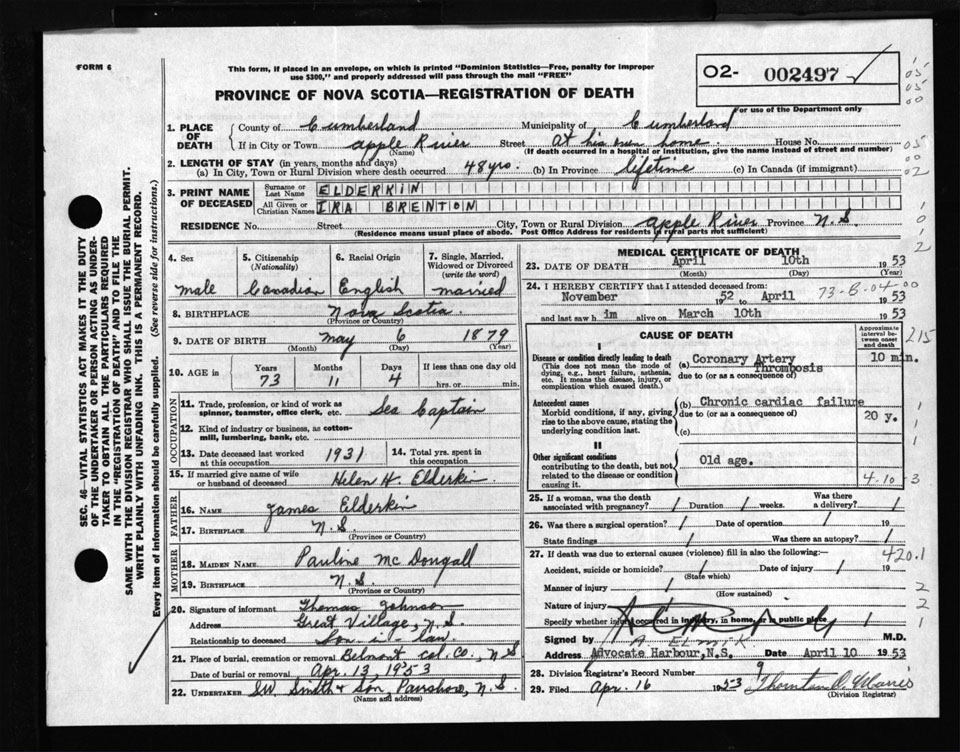 FORM 6
This form, if placed in an envelope, on which is printed "Dominion Statistics—Free, penalty for improper
use $300," and properly addressed will pass through the mail "FREE"
PROVINCE OF NOVA SCOTIA—REGISTRATION OF DEATH
O2- 002497
For use of the Department only
1. PLACE OF DEATH
County of Cumberland Municipality of Cumberland
If in City or Town Apple River (Name) Street At his own home House No.
(If death occurred in a hospital or institution, give the name instead of street and number)
2. LENGTH OF STAY (in years, months and days)
(a) In City, Town or Rural Division where death occurred 48 yrs. (b) In Province lifetime (c) In Canada (if immigrant)
3. PRINT NAME OF DECEASED
Surname or Last Name ELDERKIN
All Given or Christian Names IRA BRENTON
RESIDENCE No. Street City, Town or Rural Division Apple River Province N.S
(Residence means usual place of abode. Post Office Address for residents of rural parts not sufficient)
4. Sex male
5. Citizenship (Nationality) Canadian
6. Racial Origin English
7. Single, Married, Widowed or Divorced (write the word) married
8. BIRTHPLACE Nova Scotia.
(Province or Country)
9. DATE OF BIRTH May 6 1879
(Month) (Day) (Year)
10. AGE in Years 73 Months 11 Days 4 If less than one day old hrs. or min.
OCCUPATION
11. Trade, profession, or kind of work as spinner, teamster, office clerk, etc. Sea Captain
12. Kind of industry or business, as cotton-mill, lumbering, bank, etc.
13. Date deceased last worked at this occupation 1931 14. Total yrs. spent in this occupation
15. If married give name of wife or husband of deceased Helen H. Elderkin
FATHER
16. NAME James Elderkin
17. BIRTHPLACE N.S.
(Province or Country)
MOTHER
18. MAIDEN NAME Pauline McDougall
19. BIRTHPLACE N.S.
(Province or Country)
20. Signature of informant Thomas Johnson
Address Great Village, N.S.
Relationship to deceased Son-in-law.
21. Place of burial, cremation or removal Belmont Col. Co., N.S
Date of burial or removal Apr. 13, 1953
22. UNDERTAKER Smith & Son, N.S.
(Name and address)
MEDICAL CERTIFICATE OF DEATH
23. DATE OF DEATH April 10th 1953
(Month) (Day) (Year)
24. I HEREBY CERTIFY that I attended deceased from:
November 1952 to April 1953
73-8-04-00
and last saw h im alive on March 10th 1953
CAUSE OF DEATH
Approximate interval between onset and death
215
I
Disease or condition directly leading to death
(This does not mean the mode of dying, e.g., heart failure, asthenia, etc. It means the disease, injury, or complication which caused death.)
(a) Coronary Artery Thrombosis 10 min.
due to (or as a consequence of)
Antecedent causes
Morbid conditions, if any, giving rise to the above cause, stating the underlying condition last.
(b) Chronic cardiac failure 20 y.
due to (or as a consequence of)
(c)
II
Other significant conditions
contributing to the death, but not related to the disease or condition causing it.
Old age.
4-10-3
25. If a woman, was the death associated with pregnancy? / Duration / weeks. Was there a delivery? /
26. Was there a surgical operation? / Date of operation / 19
State findings / Was there an autopsy? /
27. If death was due to external causes (violence) fill in also the following: 420.1
Accident, suicide or homicide? / Date of injury / 19
(State which)
Manner of injury /
(How sustained)
Nature of injury
Specify whether injury occurred in industry, in home, or in public place
Signed by M.D.
Address Advocate Harbour, N.S. Date April 10 1953
28. Division Registrar's Record Number 9
29. Filed Apr. 16 1953
(Division Registrar)
SEC. 46—VITAL STATISTICS ACT MAKES IT THE DUTY
OF THE UNDERTAKER OR PERSON ACTING AS UNDER-
TAKER TO OBTAIN ALL THE PARTICULARS REQUIRED
IN THE "REGISTRATION OF DEATH" AND TO FILE THE
SAME WITH THE DIVISION REGISTRAR WHO SHALL ISSUE THE BURIAL PERMIT.
WRITE PLAINLY WITH UNFADING INK. THIS IS A PERMANENT RECORD.
Every item of information should be carefully supplied. (See reverse side for instructions.)